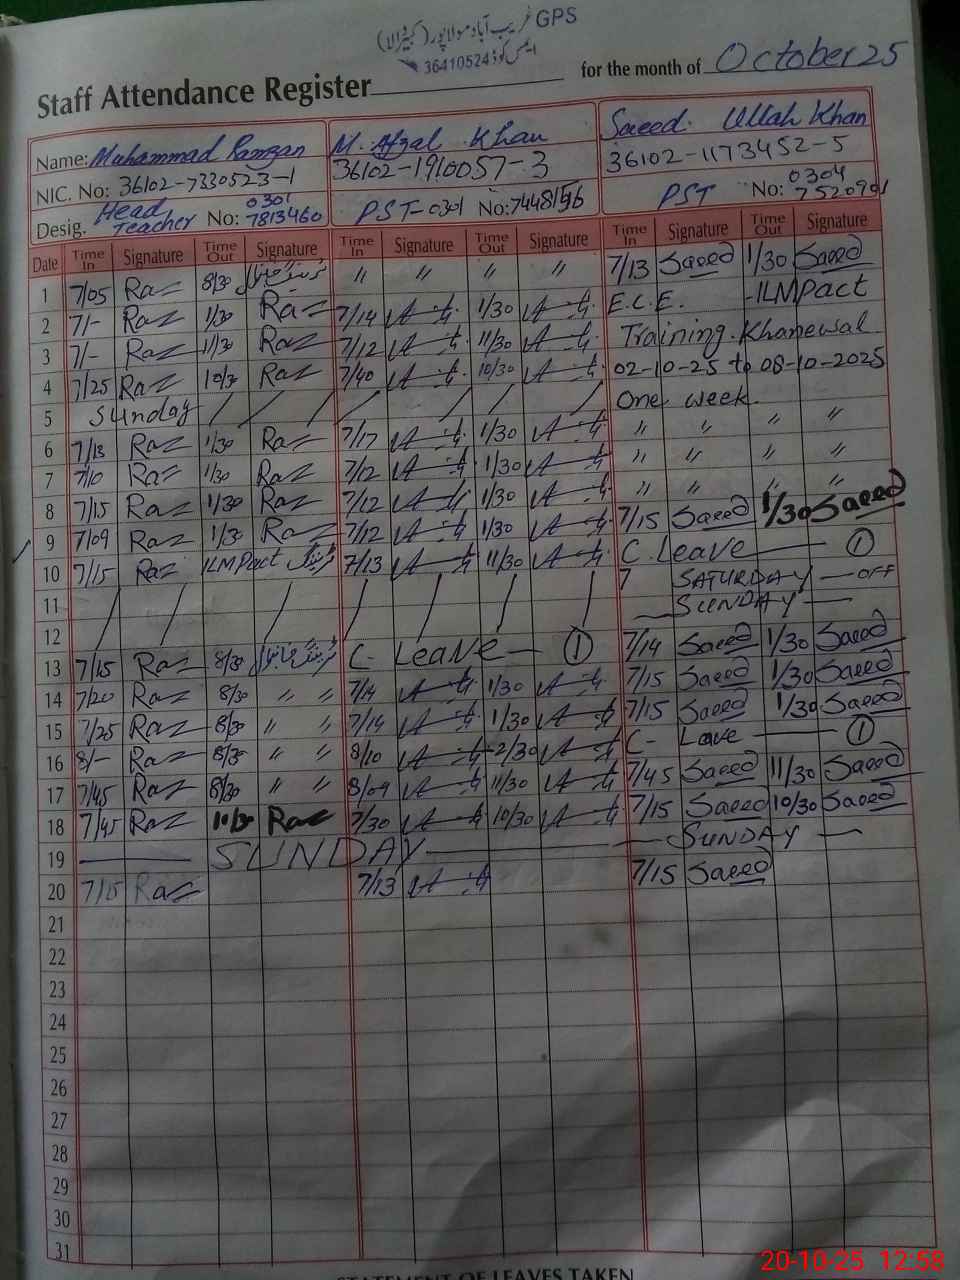 GPS غریب آباد مولاپور (کبیروالا)
ایمس کوڈ 36410524
Staff Attendance Register for the month of October 25
Name: Muhammad Ramzan M. Afzal Khan Saeed Ullah Khan
NIC. No: 36102-7330523-1 36102-1910057-3 36102-1173452-5
Desig. Head Teacher No: 0301 7813460 PST-0301 No: 7448156 PST No: 0304 7520901
Date Time In Signature Time Out Signature Time In Signature Time Out Signature Time In Signature Time Out Signature
1 7/05 Raz 8/30 〃 〃 〃 〃 7/13 Saeed 1/30 Saeed
2 7/- Raz 1/30 Raz 7/14 1/30 E.C.E. - ILMPact
3 7/- Raz 11/30 Raz 7/12 11/30 Training. Khanewal
4 7/25 Raz 10/30 Raz 7/40 10/30 02-10-25 to 08-10-2025
5 Sunday / / / / / / / One week.
6 7/13 Raz 1/30 Raz 7/17 1/30 〃 〃 〃 〃
7 7/10 Raz 1/30 Raz 7/12 1/30 〃 〃 〃 〃
8 7/15 Raz 1/30 Raz 7/12 1/30 〃 〃 〃 〃
9 7/09 Raz 1/30 Raz 7/12 1/30 7/15 Saeed 1/30 Saeed
10 7/15 Raz ILMPact ٹریننگ 7/13 11/30 C. Leave ①
11 / / / / / / / 7 SATURDAY - OFF
12 SUNDAY
13 7/15 Raz 8/30 C- Leave - ① 7/14 Saeed 1/30 Saeed
14 7/20 Raz 8/30 〃 〃 7/14 1/30 7/15 Saeed 1/30 Saeed
15 7/25 Raz 8/30 〃 〃 7/14 1/30 7/15 Saeed 1/30 Saeed
16 8/- Raz 8/30 〃 〃 8/10 2/30 C- Lave ①
17 7/45 Raz 8/30 〃 〃 8/09 11/30 7/45 Saeed 11/30 Saeed
18 7/45 Raz 10/30 Raz 7/30 10/30 7/15 Saeed 10/30 Saeed
19 SUNDAY SUNDAY
20 7/15 Raz 7/13 7/15 Saeed
21
22
23
24
25
26
27
28
29
30
31
STATEMENT OF LEAVES TAKEN
20-10-25 12:58